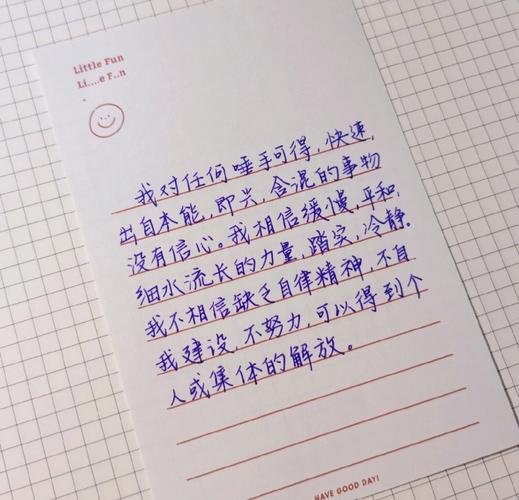 Little Fun
Li....e F..n
我对任何唾手可得，快速，
出自本能，即兴，含混的事物
没有信心。我相信缓慢，平和，
细水流长的力量，踏实，冷静。
我不相信缺乏自律精神，不自
我建设，不努力，可以得到个
人或集体的解放。
HAVE GOOD DAY!